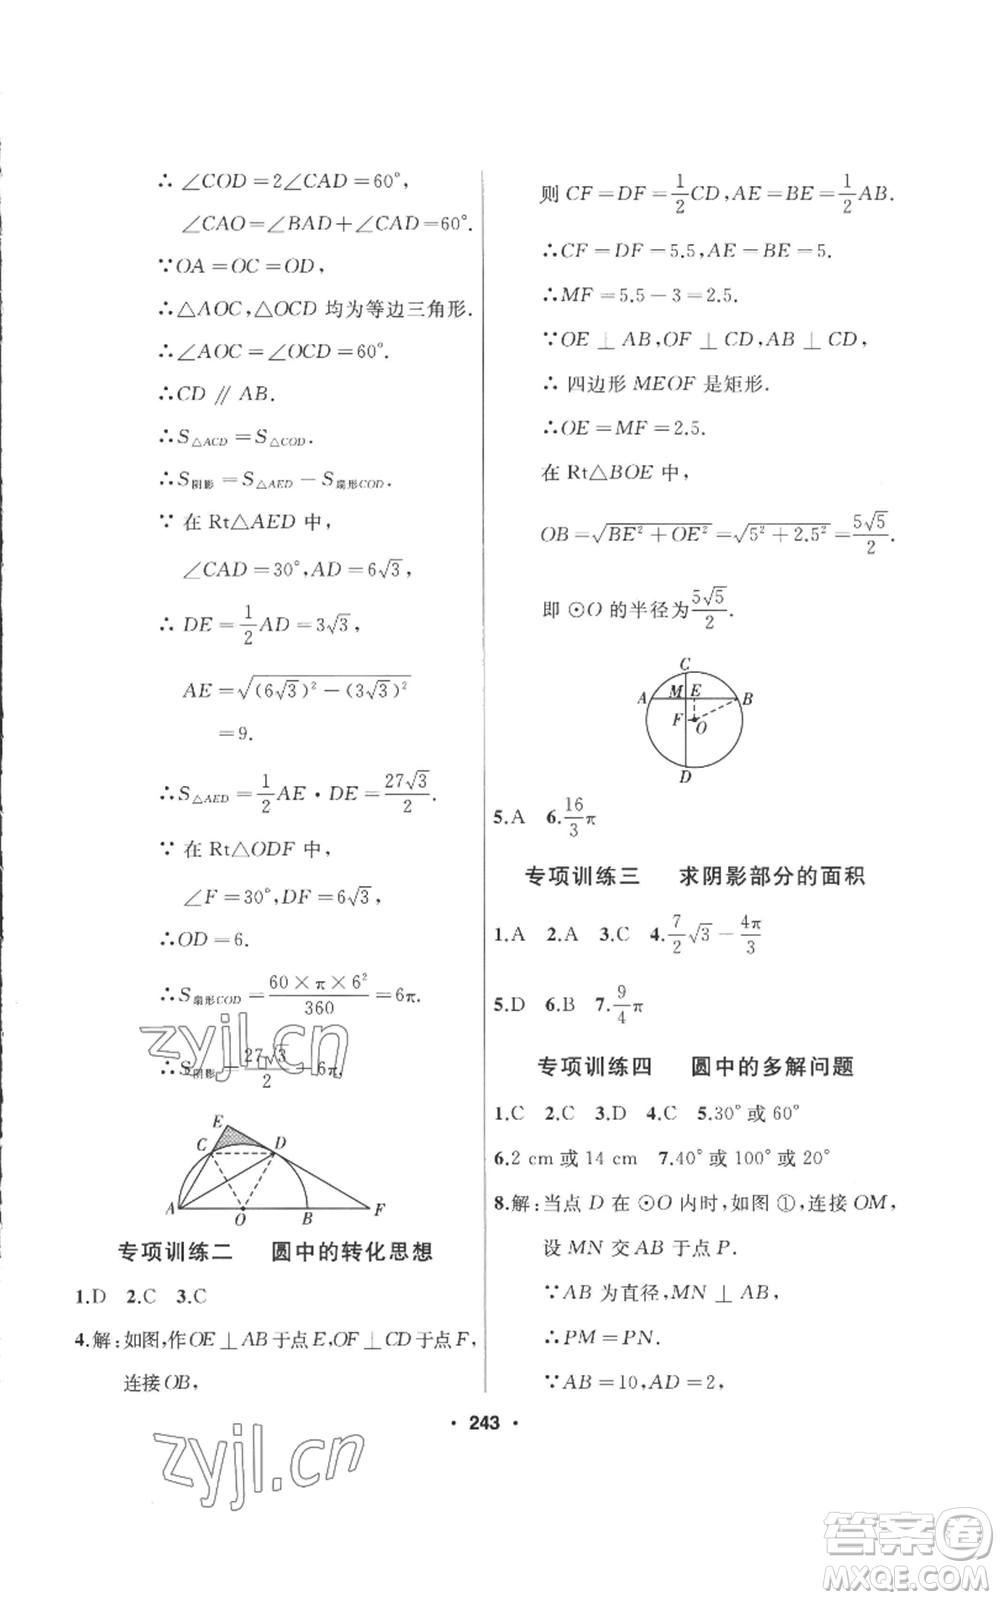 ∴ ∠COD=2∠CAD=60°,
∠CAO=∠BAD+∠CAD=60°.
∵OA=OC=OD,
∴△AOC,△OCD 均为等边三角形.
∴∠AOC=∠OCD=60°.
∴CD ∥ AB.
∴S△ACD=S△COD.
∴S阴影=S△AED−S扇形COD.
∵ 在 Rt△AED 中,
∠CAD=30°,AD=6√3,
∴ DE=1/2 AD=3√3,
AE=√((6√3)²−(3√3)²)
=9.
∴S△AED=1/2 AE·DE=27√3/2.
∵ 在 Rt△ODF 中,
∠F=30°,DF=6√3,
∴OD=6.
∴S扇形COD=60×π×6²/360=6π.
∴S阴影=27√3/2−6π.
E
C D
A O B F
专项训练二 圆中的转化思想
1.D 2.C 3.C
4.解:如图,作OE⊥AB于点E,OF⊥CD于点F,
连接OB,
则 CF=DF=1/2 CD,AE=BE=1/2 AB.
∴CF=DF=5.5,AE=BE=5.
∴MF=5.5−3=2.5.
∵OE⊥AB,OF⊥CD,AB⊥CD,
∴ 四边形 MEOF 是矩形.
∴OE=MF=2.5.
在 Rt△BOE 中,
OB=√(BE²+OE²)=√(5²+2.5²)=5√5/2.
即 ⊙O 的半径为5√5/2.
C
A M E B
F O
D
5.A 6.16/3 π
专项训练三 求阴影部分的面积
1.A 2.A 3.C 4.7/2 √3−4π/3
5.D 6.B 7.9/4 π
专项训练四 圆中的多解问题
1.C 2.C 3.D 4.C 5.30°或60°
6.2 cm或14 cm 7.40°或100°或20°
8.解:当点 D 在 ⊙O 内时,如图 ①,连接 OM,
设 MN 交 AB 于点 P.
∵AB 为直径,MN⊥AB,
∴PM=PN.
∵AB=10,AD=2,
· 243 ·
zyjl.cn
zyjl.cn
答案卷
MXQE.COM